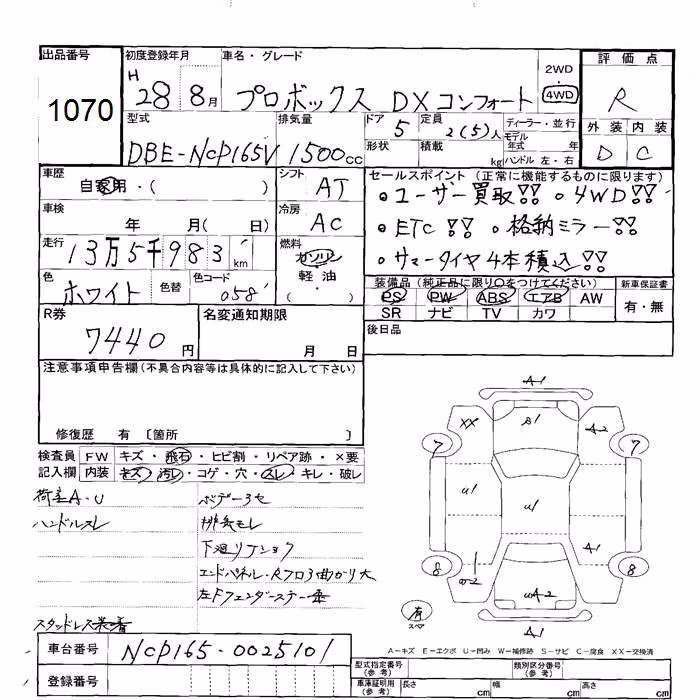 出品番号
1070
初度登録年月
H 28 8月
車名・グレード
プロボックス DXコンフォート
2WD
4WD
評価点
R
外装 内装
D C
型式
DBE-NCP165V
排気量
1500cc
ドア
5
定員
2(5)人
形状
積載
kg
ディーラー・並行
モデル
年式 年
ハンドル 左・右
車歴
自家用・( )
シフト
AT
車検
年 月( 日)
冷房
AC
走行
13万5千983km
燃料
ガソリン
軽油
( )
色
ホワイト
色替
色コード
058
セールスポイント (正常に機能するものに限ります)
・ユーザー買取!! ・4WD!!
・ETC!! ・格納ミラー!!
・サマータイヤ4本積込!!
装備品 (純正品に限り○をつけてください)
PS PW ABS エアB AW
SR ナビ TV カワ
新車保証書
有・無
R券
7440円
名変通知期限
月 日
後日品
注意事項申告欄(不具合内容等は具体的に記入して下さい)
修復歴 有 〔箇所 〕
検査員 FW キズ・飛石・ヒビ割・リペア跡・×要
記入欄 内装 キズ・汚レ・コゲ・穴・スレ・キレ・破レ
荷室A・U
ハンドルスレ
スタッドレス装着
ボデー3セ
排気モレ
下廻リアショウ
エンドパネル・Rフロ3曲がり大
左Fフェンダーステー
A1
XX
A2
7
7
U1
U1
A1
8
8
UA2
有
スペア
A1
A=キズ E=エクボ U=凹み W=補修跡 S=サビ C=腐食 XX=交換済
車台番号
NCP165-0025101
登録番号
型式指定番号
(参考)
類別区分番号
(参考)
車庫証明用
(参考)
長さ cm
幅 cm
高さ cm